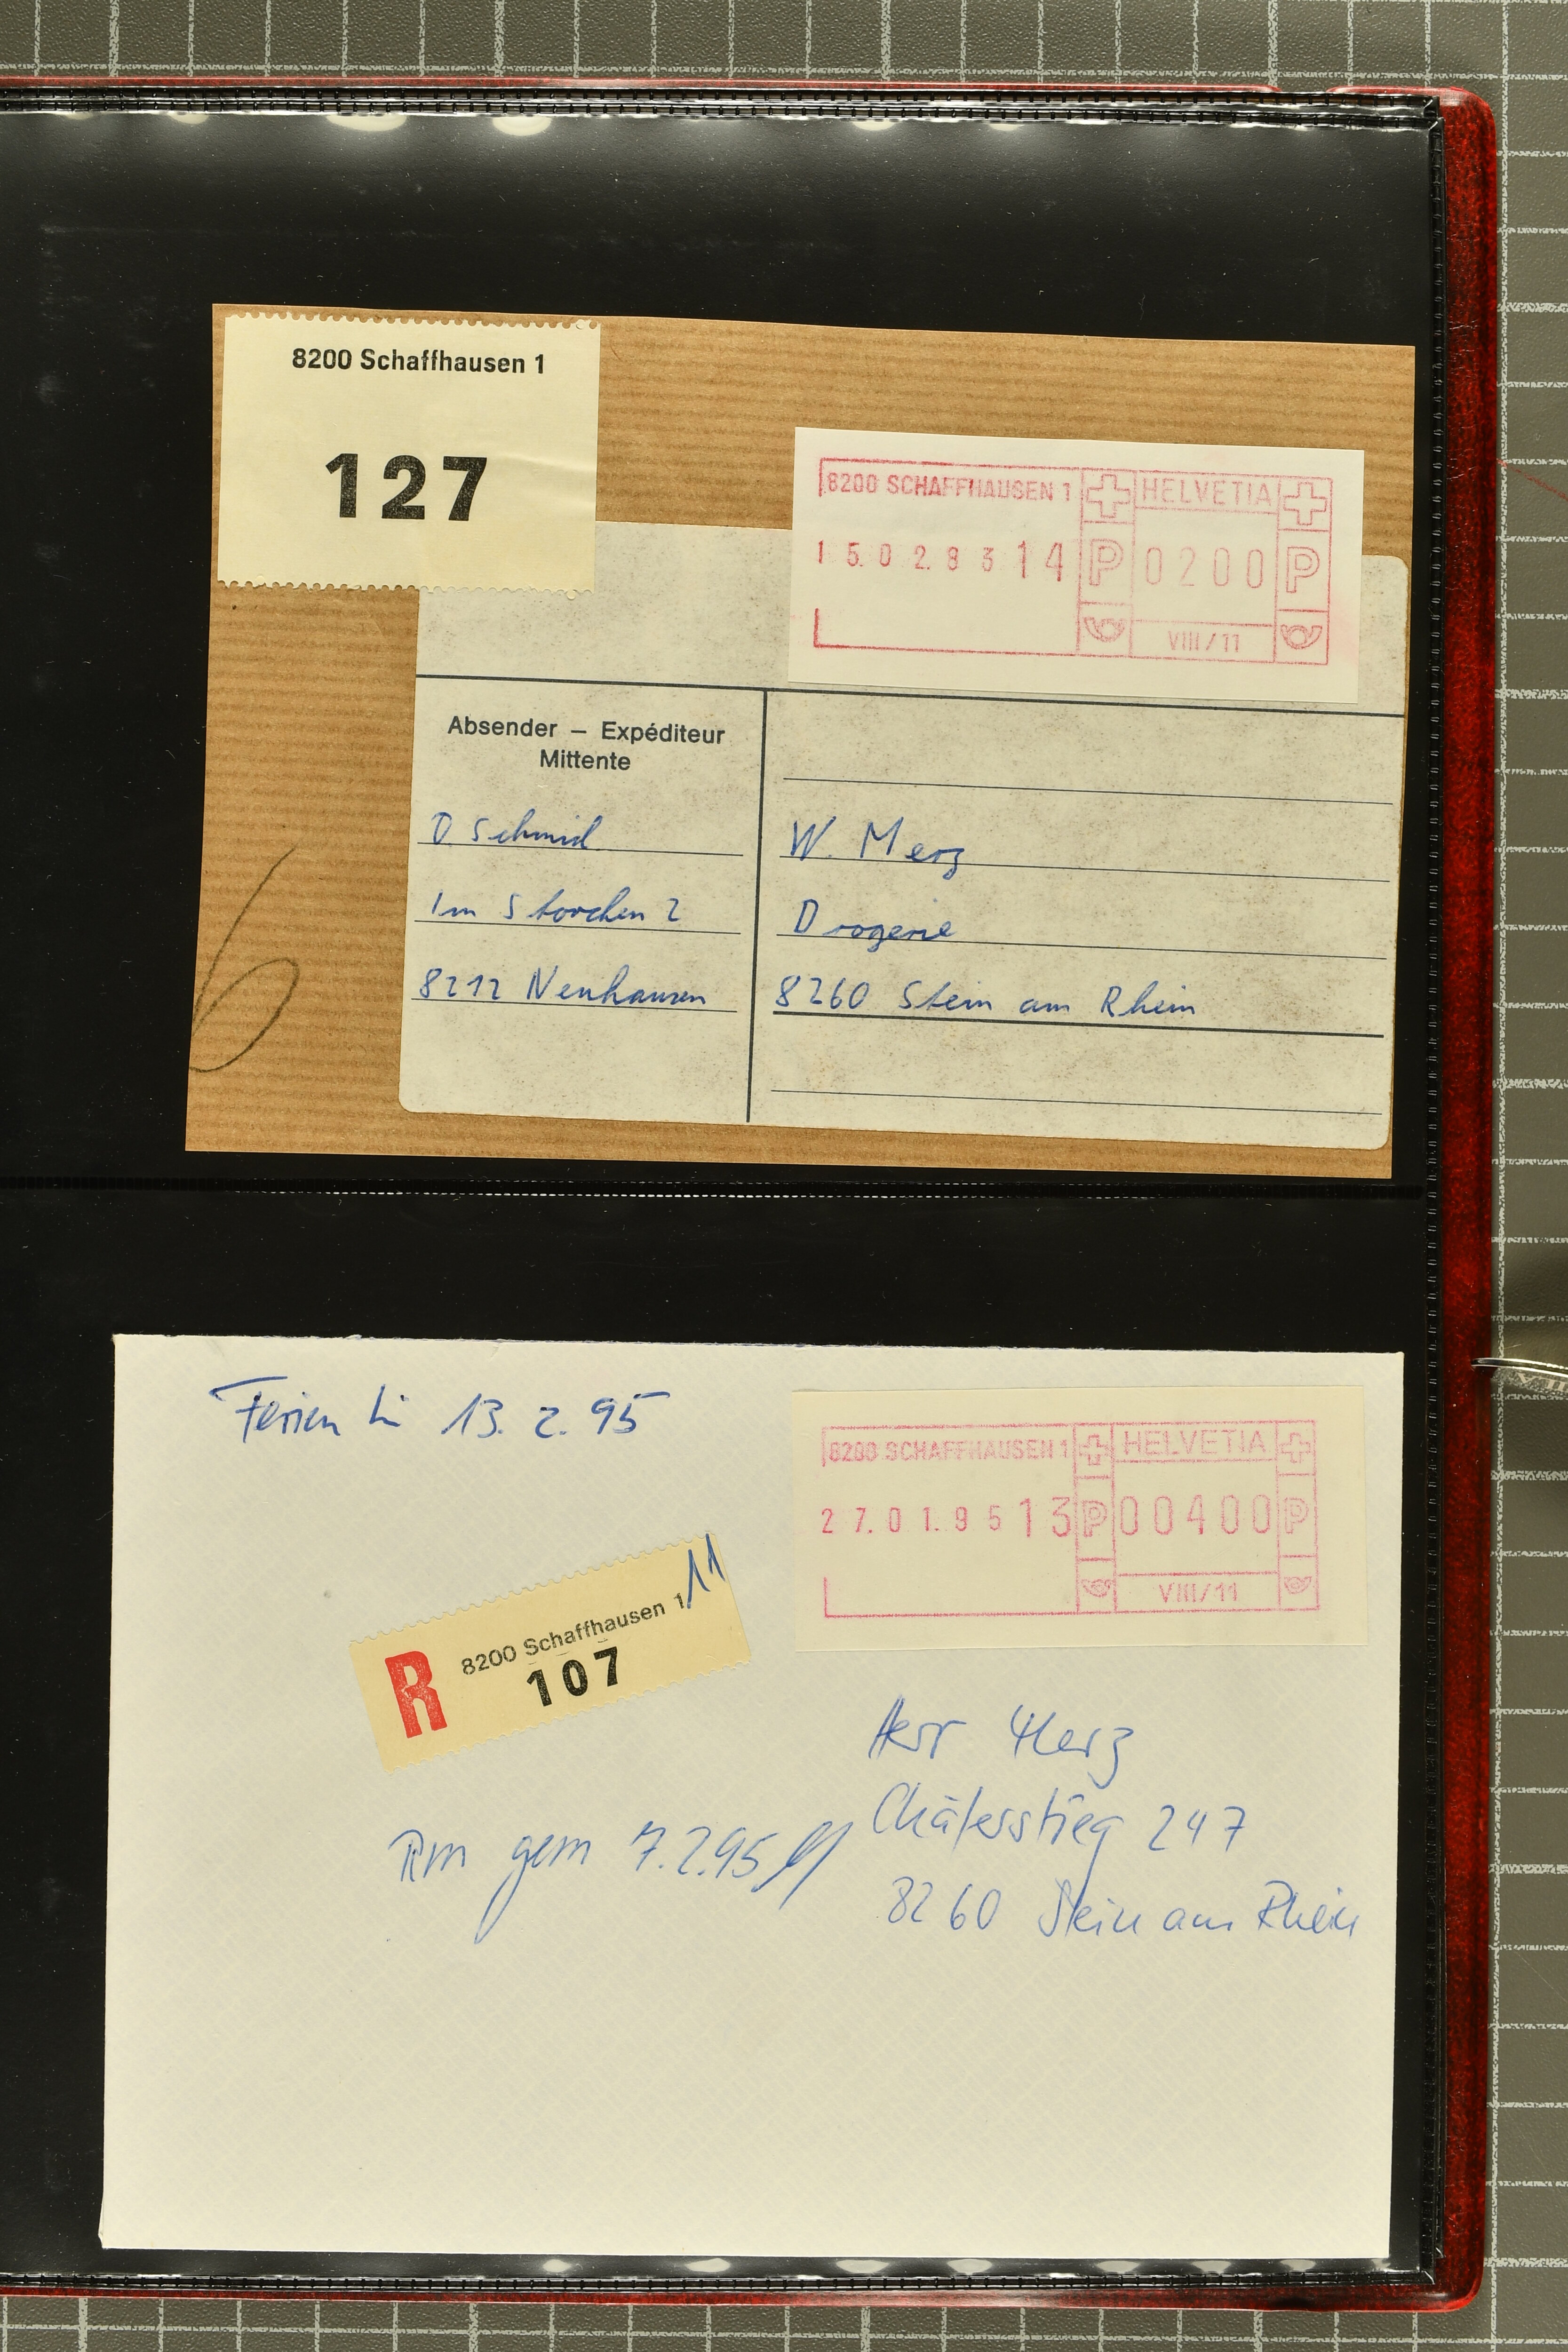 8200 Schaffhausen 1
127
8200 SCHAFFHAUSEN 1 HELVETIA
15.02.83 14 P 0200 P
VIII/11
Absender – Expéditeur
Mittente
D. Schmid
Im Storchen 2
8212 Neuhausen
W. Merz
Drogerie
8260 Stein am Rhein
6
Ferien bis 13. 2. 95
8200 SCHAFFHAUSEN 1 HELVETIA
27.01.95 13 P 00400 P
VIII/11
R 8200 Schaffhausen 1 11
107
Herr Merz
Chäfersstieg 247
8260 Stein am Rhein
Rm gem 7.2.95